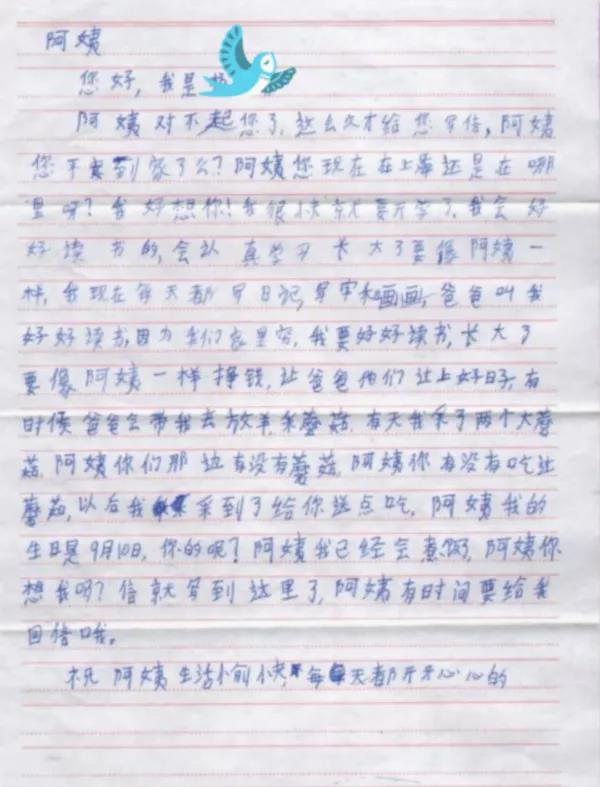 阿姨
您好，我是
阿姨对不起您了，这么久才给您写信，阿姨
您平安到家了么？阿姨您现在在上海还是在哪
里呀？我好想你！我很快就要开学了，我会好
好读书的，会认真学习长大了要像阿姨一
样，我现在每天都写日记，写字和画画，爸爸叫我
好好读书，因为我们家里穷，我要好好读书，长大了
要像阿姨一样挣钱，让爸爸他们过上好日子，有
时候爸爸会带我去放羊，采蘑菇，有天我采了两个大蘑
菇，阿姨你们那边有没有蘑菇，阿姨你有没有吃过
蘑菇，以后我采到了给你送点吃，阿姨我的
生日是9月10日，你的呢？阿姨我已经会煮饭，阿姨你
想我吗？信就写到这里了，阿姨有时间要给我
回信哦。
祝阿姨生活愉快，每天都开开心心的